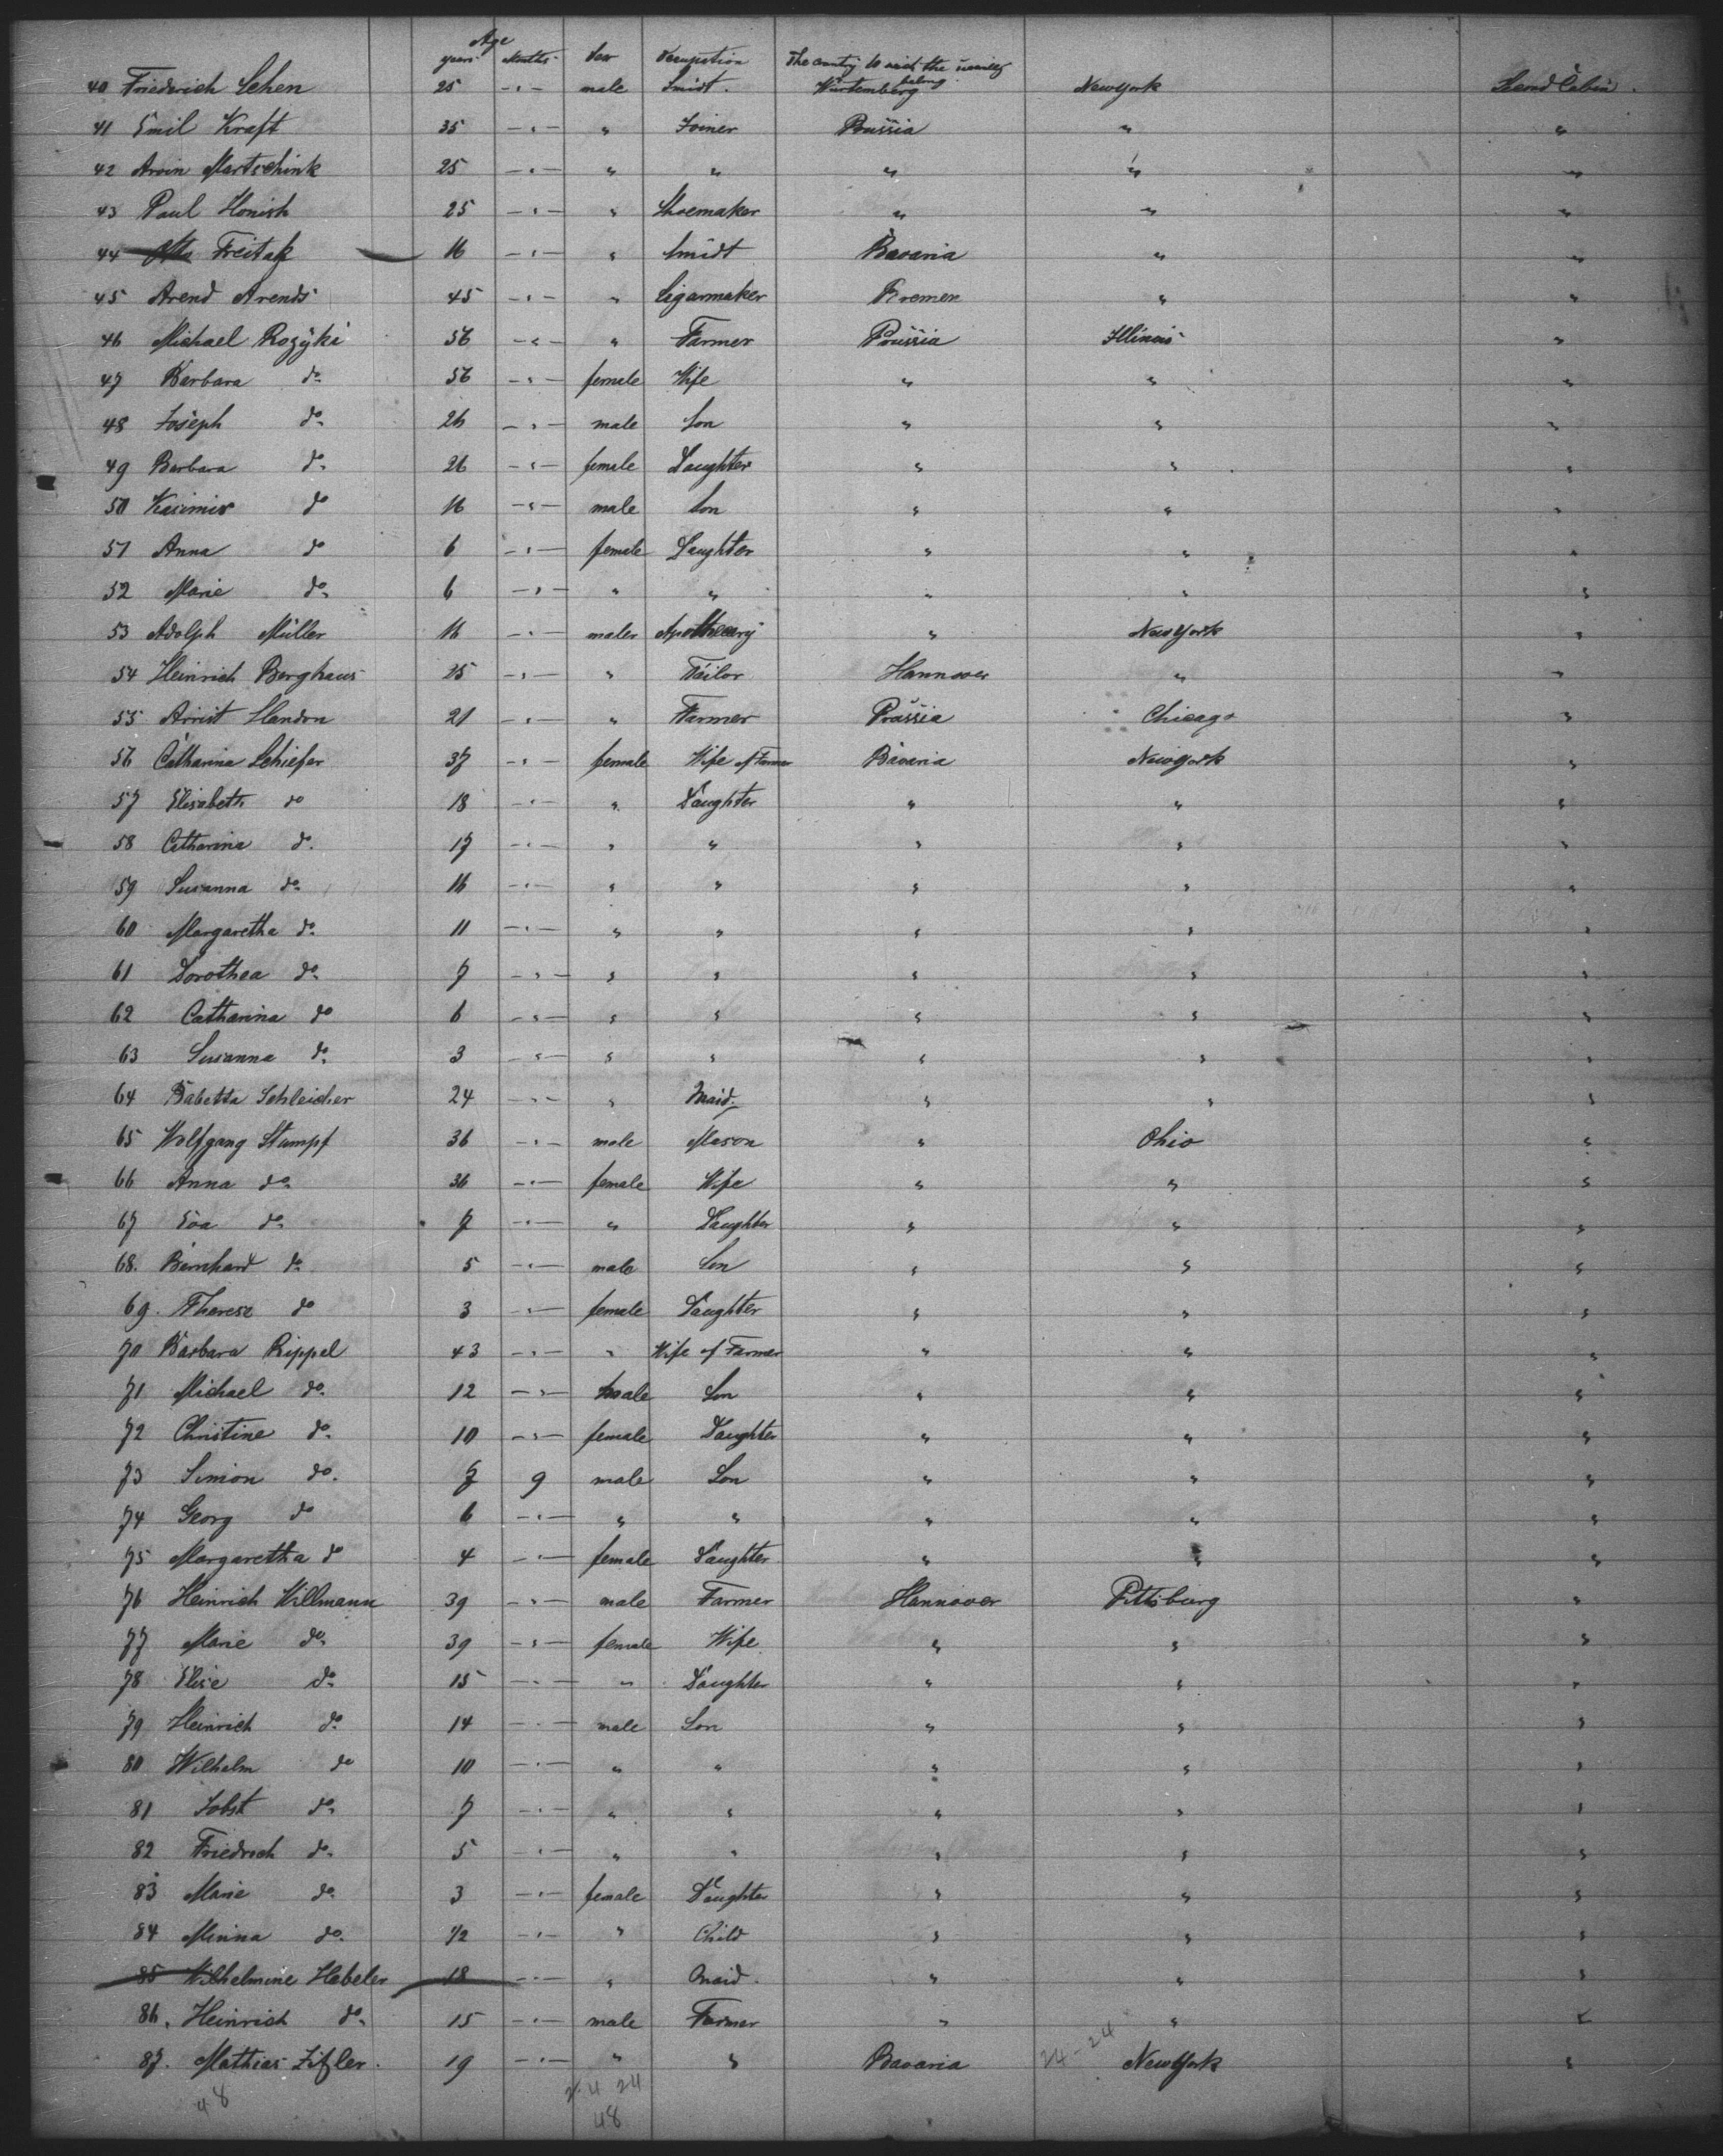 Age
years Months Sex Occupation The country to wich the usually belong.
40 Friederich Schen 25 -"- male Smidt. Würtemberg NewYork Second Cabin.
41 Emil Kraft 35 -"- " Joiner Prussia " "
42 Arvin Martschink 25 -"- " " " " "
43 Paul Honish 25 -"- " Shoemaker " " "
44 Otto Freitak 16 -"- " Smidt Bavaria " "
45 Arend Arends 45 -"- " Cigarmaker Bremen " "
46 Michael Rozÿki 56 -"- " Farmer Prussia Illinois "
47 Barbara do 56 -"- female Wife " " "
48 Joseph do 26 -"- male Son " " "
49 Barbara do 26 -"- female Daughter " " "
50 Kasimir do 16 -"- male Son " " "
51 Anna do 6 -"- female Daughter " " "
52 Marie do 6 -"- " " " " "
53 Adolph Müller 16 -"- male " Apothecary " NewYork "
54 Heinrich Berghaus 25 -"- " Tailor Hannover " "
55 Arrist Handon 21 -"- " Farmer Prussia Chicago "
56 Catharina Schiefer 37 -"- female Wife of Farmer Bavaria NewYork "
57 Elisabeth do 18 -"- " Daughter " " "
58 Catharina do. 17 -"- " " " " "
59 Susanna do 16 -"- " " " " "
60 Margaretha do 11 -"- " " " " "
61 Dorothea do 7 -"- " " " " "
62 Catharina do 6 -"- " " " " "
63 Susanna do 3 -"- " " " " "
64 Babetta Schleicher 24 -"- " Maid. " " "
65 Wolfgang Stumpf 36 -"- male Mason " Ohio "
66 Anna do 36 -"- female Wife " " "
67 Eva do 7 -"- " Daughter " " "
68. Bernhard do 5 -"- male Son " " "
69. Therese do 3 -"- female Daughter " " "
70 Barbara Rippel 43 -"- " Wife of Farmer " " "
71 Michael do. 12 -"- male Son " " "
72 Christine do. 10 -"- female Daughter " " "
73 Simon do. 7 9 male Son " " "
74 Georg do 6 -"- " " " " "
75 Margaretha do 4 -"- female Daughter " " "
76 Heinrich Willmann 39 -"- male Farmer Hannover Pittsburg "
77 Marie do 39 -"- female Wife " " "
78 Elise do 15 -"- " Daughter " " "
79 Heinrich do 14 -"- male Son " " "
80 Wilhelm do 10 -"- " " " " "
81 Jobst do 7 -"- " " " " "
82 Friedrich do. 5 -"- " " " " "
83 Marie do 3 -"- female Daughter " " "
84 Minna do. 1/2 -"- " Child " " "
85 Wilhelmine Habeler 18 -"- " Maid. " " "
86. Heinrich do. 15 -"- male Farmer " " "
87. Mathias Zitzler. 19 -"- " " Bavaria 24-24 NewYork "
48 24 24
48